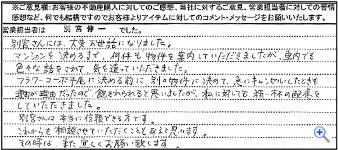 ※ご意見欄:お客様の不動産購入に対してのご感想、当社に対するご意見、営業担当者に対しての習慣
感想など、何でも結構ですのでお客様よりアイテムに対してのコメント・メッセージをお願いいたします。
営業担当者は 別宮 修一 でした。
別宮さんには、大変お世話になりました。
マンションを決めるまで、何件も物件を案内していただきましたが、車内でも
色々な話をされて、気を遣っていただきました。
フラワーコート に決める前に別の物件に決めて、急にキャンセルしたときも
理由が理由だったので、飽きられると思いましたが、私に対しても精一杯の配慮を
していただきました。
別宮さんは本当に信頼できる方です。
これからも相談させていただくことも有ると思います。
その時は、また宜しくお願い致します。